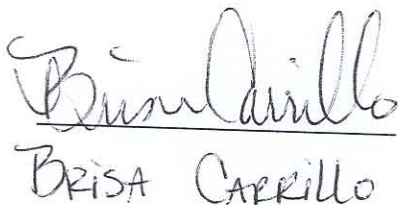 Brisa Carrillo
BRiSA CARRiLLO